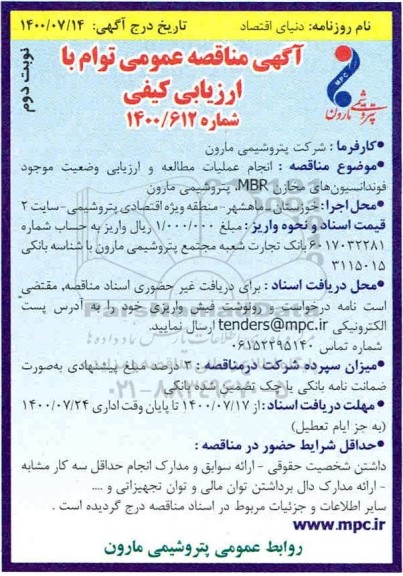 نام روزنامه: دنیای اقتصاد
تاریخ درج آگهی: ۱۴۰۰/۰۷/۱۴
نوبت دوم
آگهی مناقصه عمومی توام با
ارزیابی کیفی
شماره ۱۴۰۰/۶۱۲
MPC
پتروشیمی مارون
•کارفرما : شرکت پتروشیمی مارون
•موضوع مناقصه : انجام عملیات مطالعه و ارزیابی وضعیت موجود
فوندانسیون‌های مخازن MBR، پتروشیمی مارون
•محل اجرا: خوزستان-ماهشهر-منطقه ویژه اقتصادی پتروشیمی-سایت ۲
قیمت اسناد و نحوه واریز : مبلغ ۱/۰۰۰/۰۰۰ ریال واریز به حساب شماره
۶۰۱۷۰۳۲۲۸۱ بانک تجارت شعبه مجتمع پتروشیمی مارون با شناسه بانکی
۳۱۱۵۰۱۵
•محل دریافت اسناد : برای دریافت غیر حضوری اسناد مناقصه، مقتضی
است نامه درخواست و رونوشت فیش واریزی خود را به آدرس پست
الکترونیکی tenders@mpc.ir ارسال نمایید.
شماره تماس ۰۶۱۵۲۲۹۵۱۴۰
•میزان سپرده شرکت درمناقصه : ۳ درصد مبلغ پیشنهادی به‌صورت
ضمانت نامه بانکی یا چک تضمین شده بانکی
•مهلت دریافت اسناد: از ۱۴۰۰/۰۷/۱۷ تا پایان وقت اداری ۱۴۰۰/۰۷/۲۴
(به جز ایام تعطیل)
•حداقل شرایط حضور در مناقصه :
داشتن شخصیت حقوقی - ارائه سوابق و مدارک انجام حداقل سه کار مشابه
- ارائه مدارک دال برداشتن توان مالی و توان تجهیزاتی و ....
سایر اطلاعات و جزئیات مربوط در اسناد مناقصه درج گردیده است .
www.mpc.ir
روابط عمومی پتروشیمی مارون